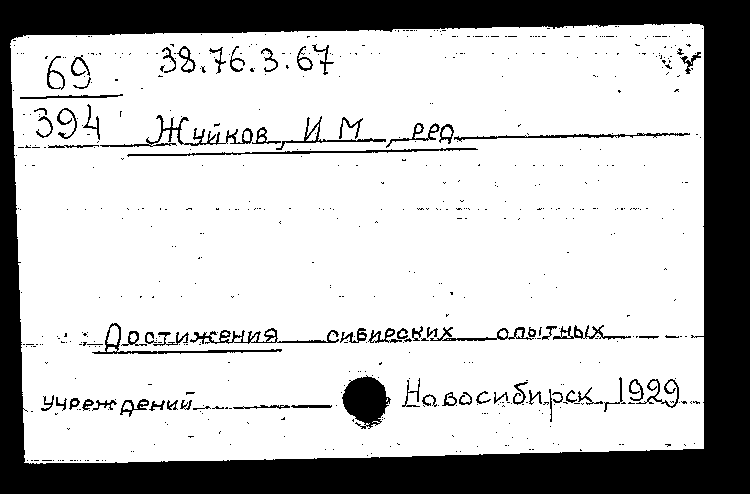 69 38.76.3.67
394 Жуйков, И М, ред
Достижения сибирских опытных
учреждений Новосибирск, 1929